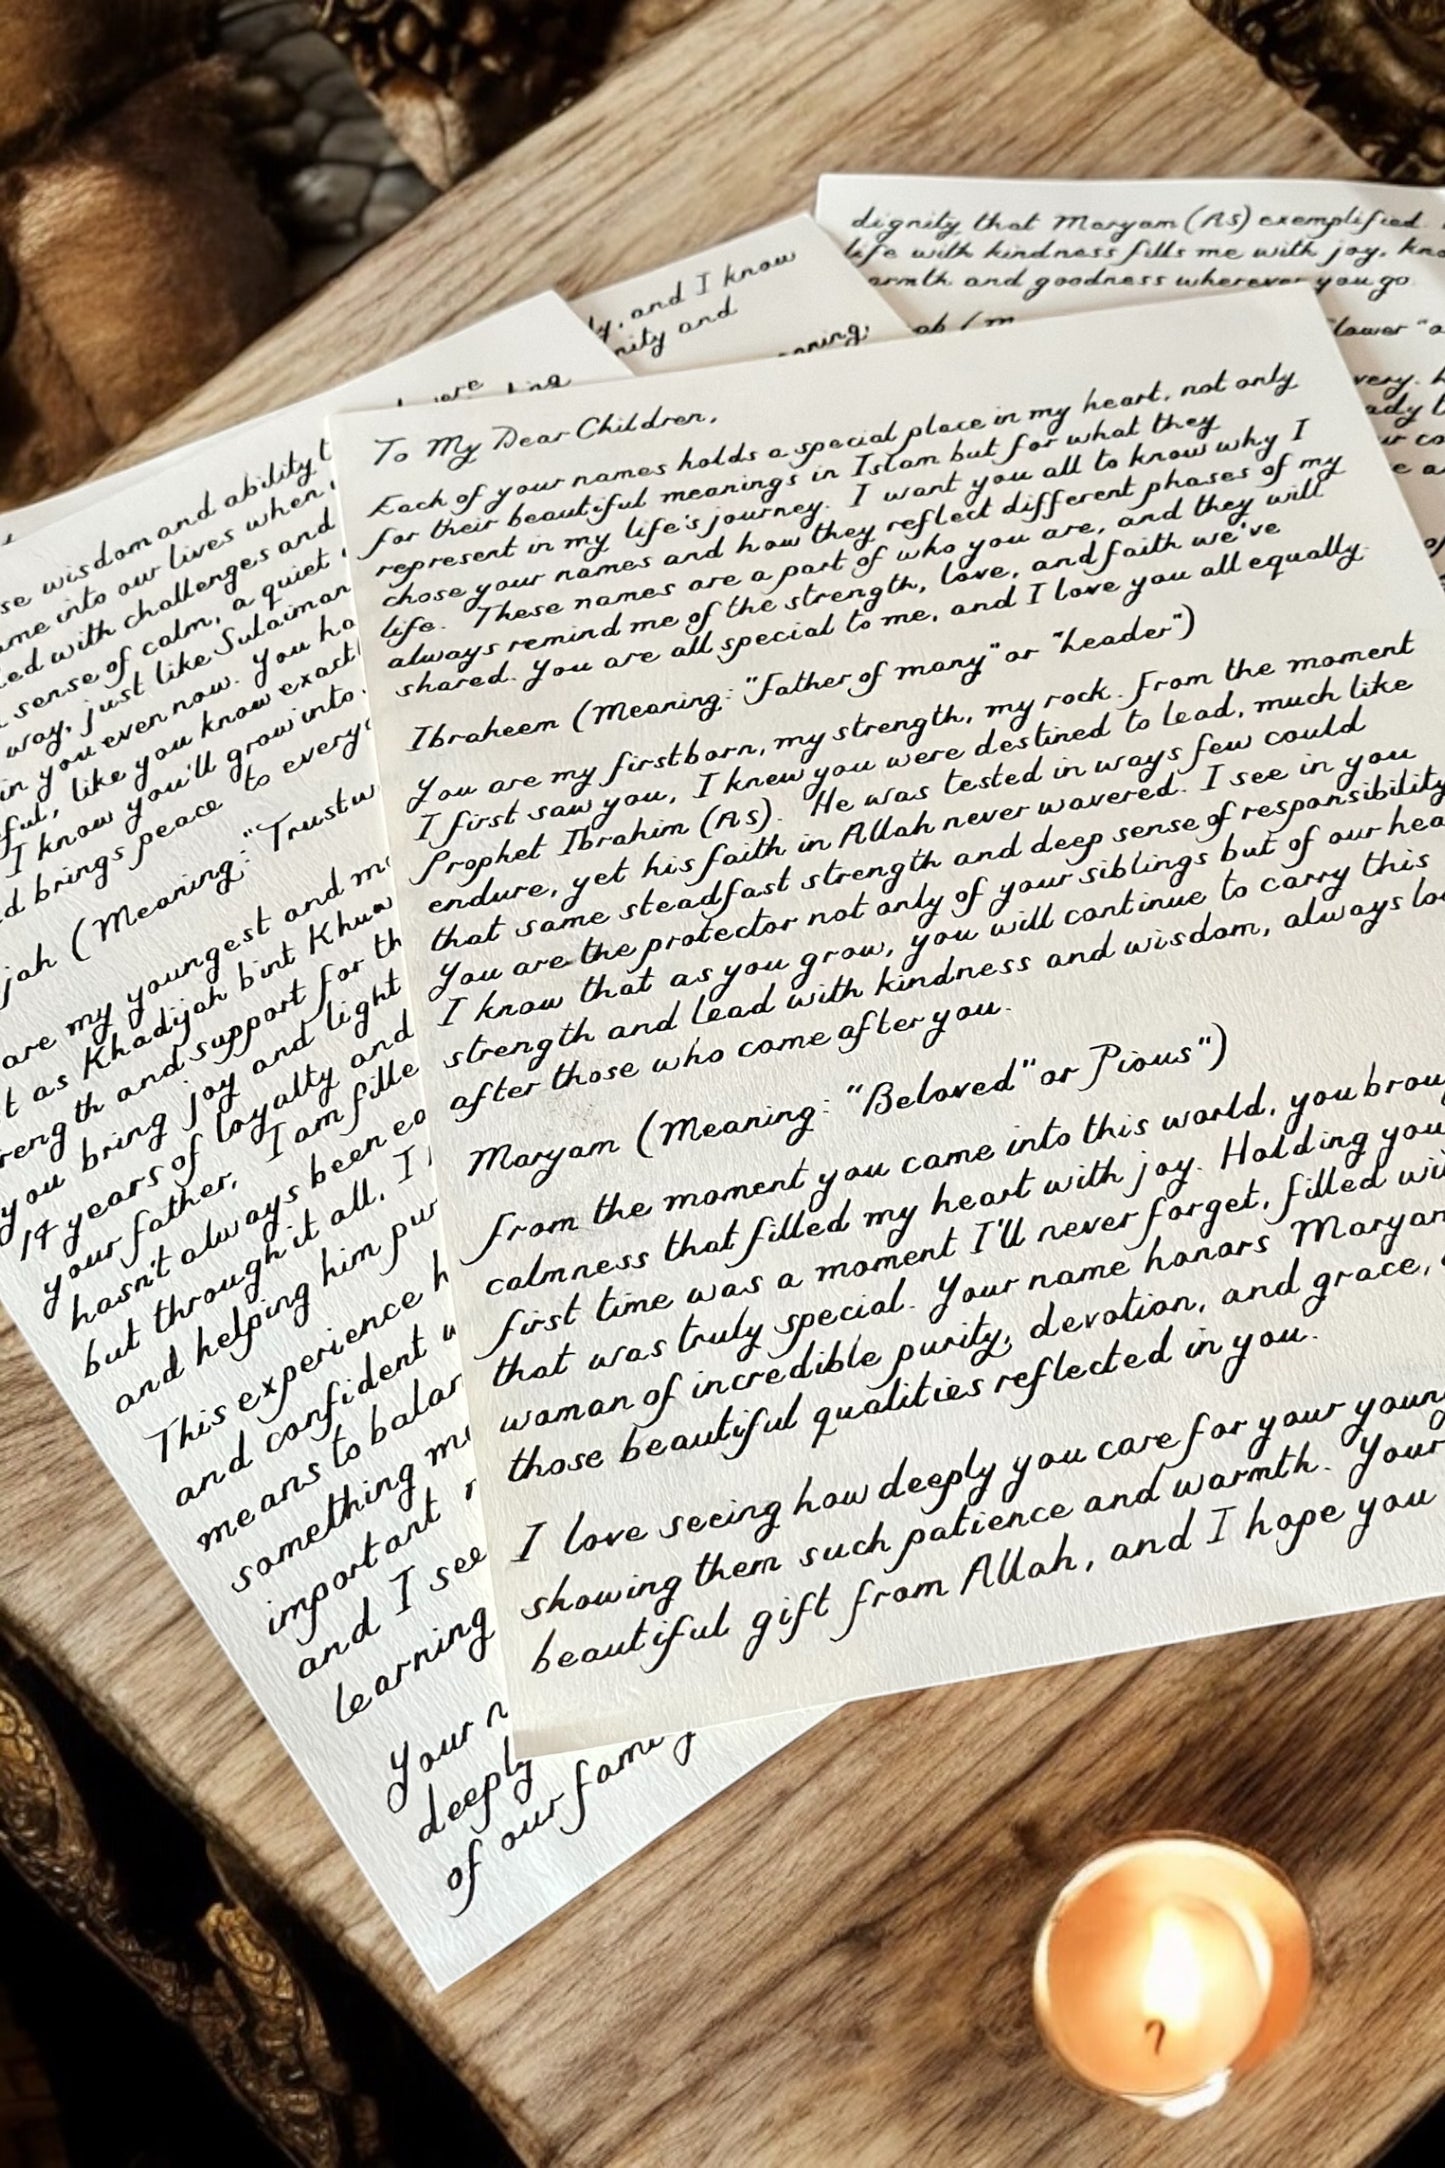 To My Dear Children,
Each of your names holds a special place in my heart, not only
for their beautiful meanings in Islam but for what they
represent in my life's journey. I want you all to know why I
chose your names and how they reflect different phases of my
life. These names are a part of who you are, and they will
always remind me of the strength, love, and faith we've
shared. You are all special to me, and I love you all equally.
Ibraheem (Meaning: "Father of many" or "Leader")
You are my firstborn, my strength, my rock. From the moment
I first saw you, I knew you were destined to lead, much like
Prophet Ibrahim (AS). He was tested in ways few could
endure, yet his faith in Allah never wavered. I see in you
that same steadfast strength and deep sense of responsibility
You are the protector not only of your siblings but of our hea
I know that as you grow, you will continue to carry this
strength and lead with kindness and wisdom, always loo
after those who come after you.
Maryam (Meaning: "Beloved" or Pious")
From the moment you came into this world, you brou
calmness that filled my heart with joy. Holding you
first time was a moment I'll never forget, filled wi
that was truly special. Your name honors Maryam
woman of incredible purity, devotion, and grace,
those beautiful qualities reflected in you.
I love seeing how deeply you care for your young
showing them such patience and warmth. Your
beautiful gift from Allah, and I hope you
se wisdom and ability t
ame into our lives when
ed with challenges and
sense of calm, a quiet
way, just like Sulaiman
in you even now. You ha
ful, like you know exact
I know you'll grow into
d brings peace to every
jah (Meaning: "Trustw
are my youngest and m
t as Khadijah bint Khuw
rength and support for th
you bring joy and light
14 years of loyalty and
your father, I am fille
hasn't always been ea
but through it all, I
and helping him pur
This experience h
and confident w
means to balan
something m
important
and I see
learning
Your n
deeply
of our family
were
ly, and I know
nity and
aning:
dignity that Maryam (AS) exemplified.
life with kindness fills me with joy, kno
armth and goodness wherever you go.
ah (m
Flower" o
very.
ady
ur co
e a
of